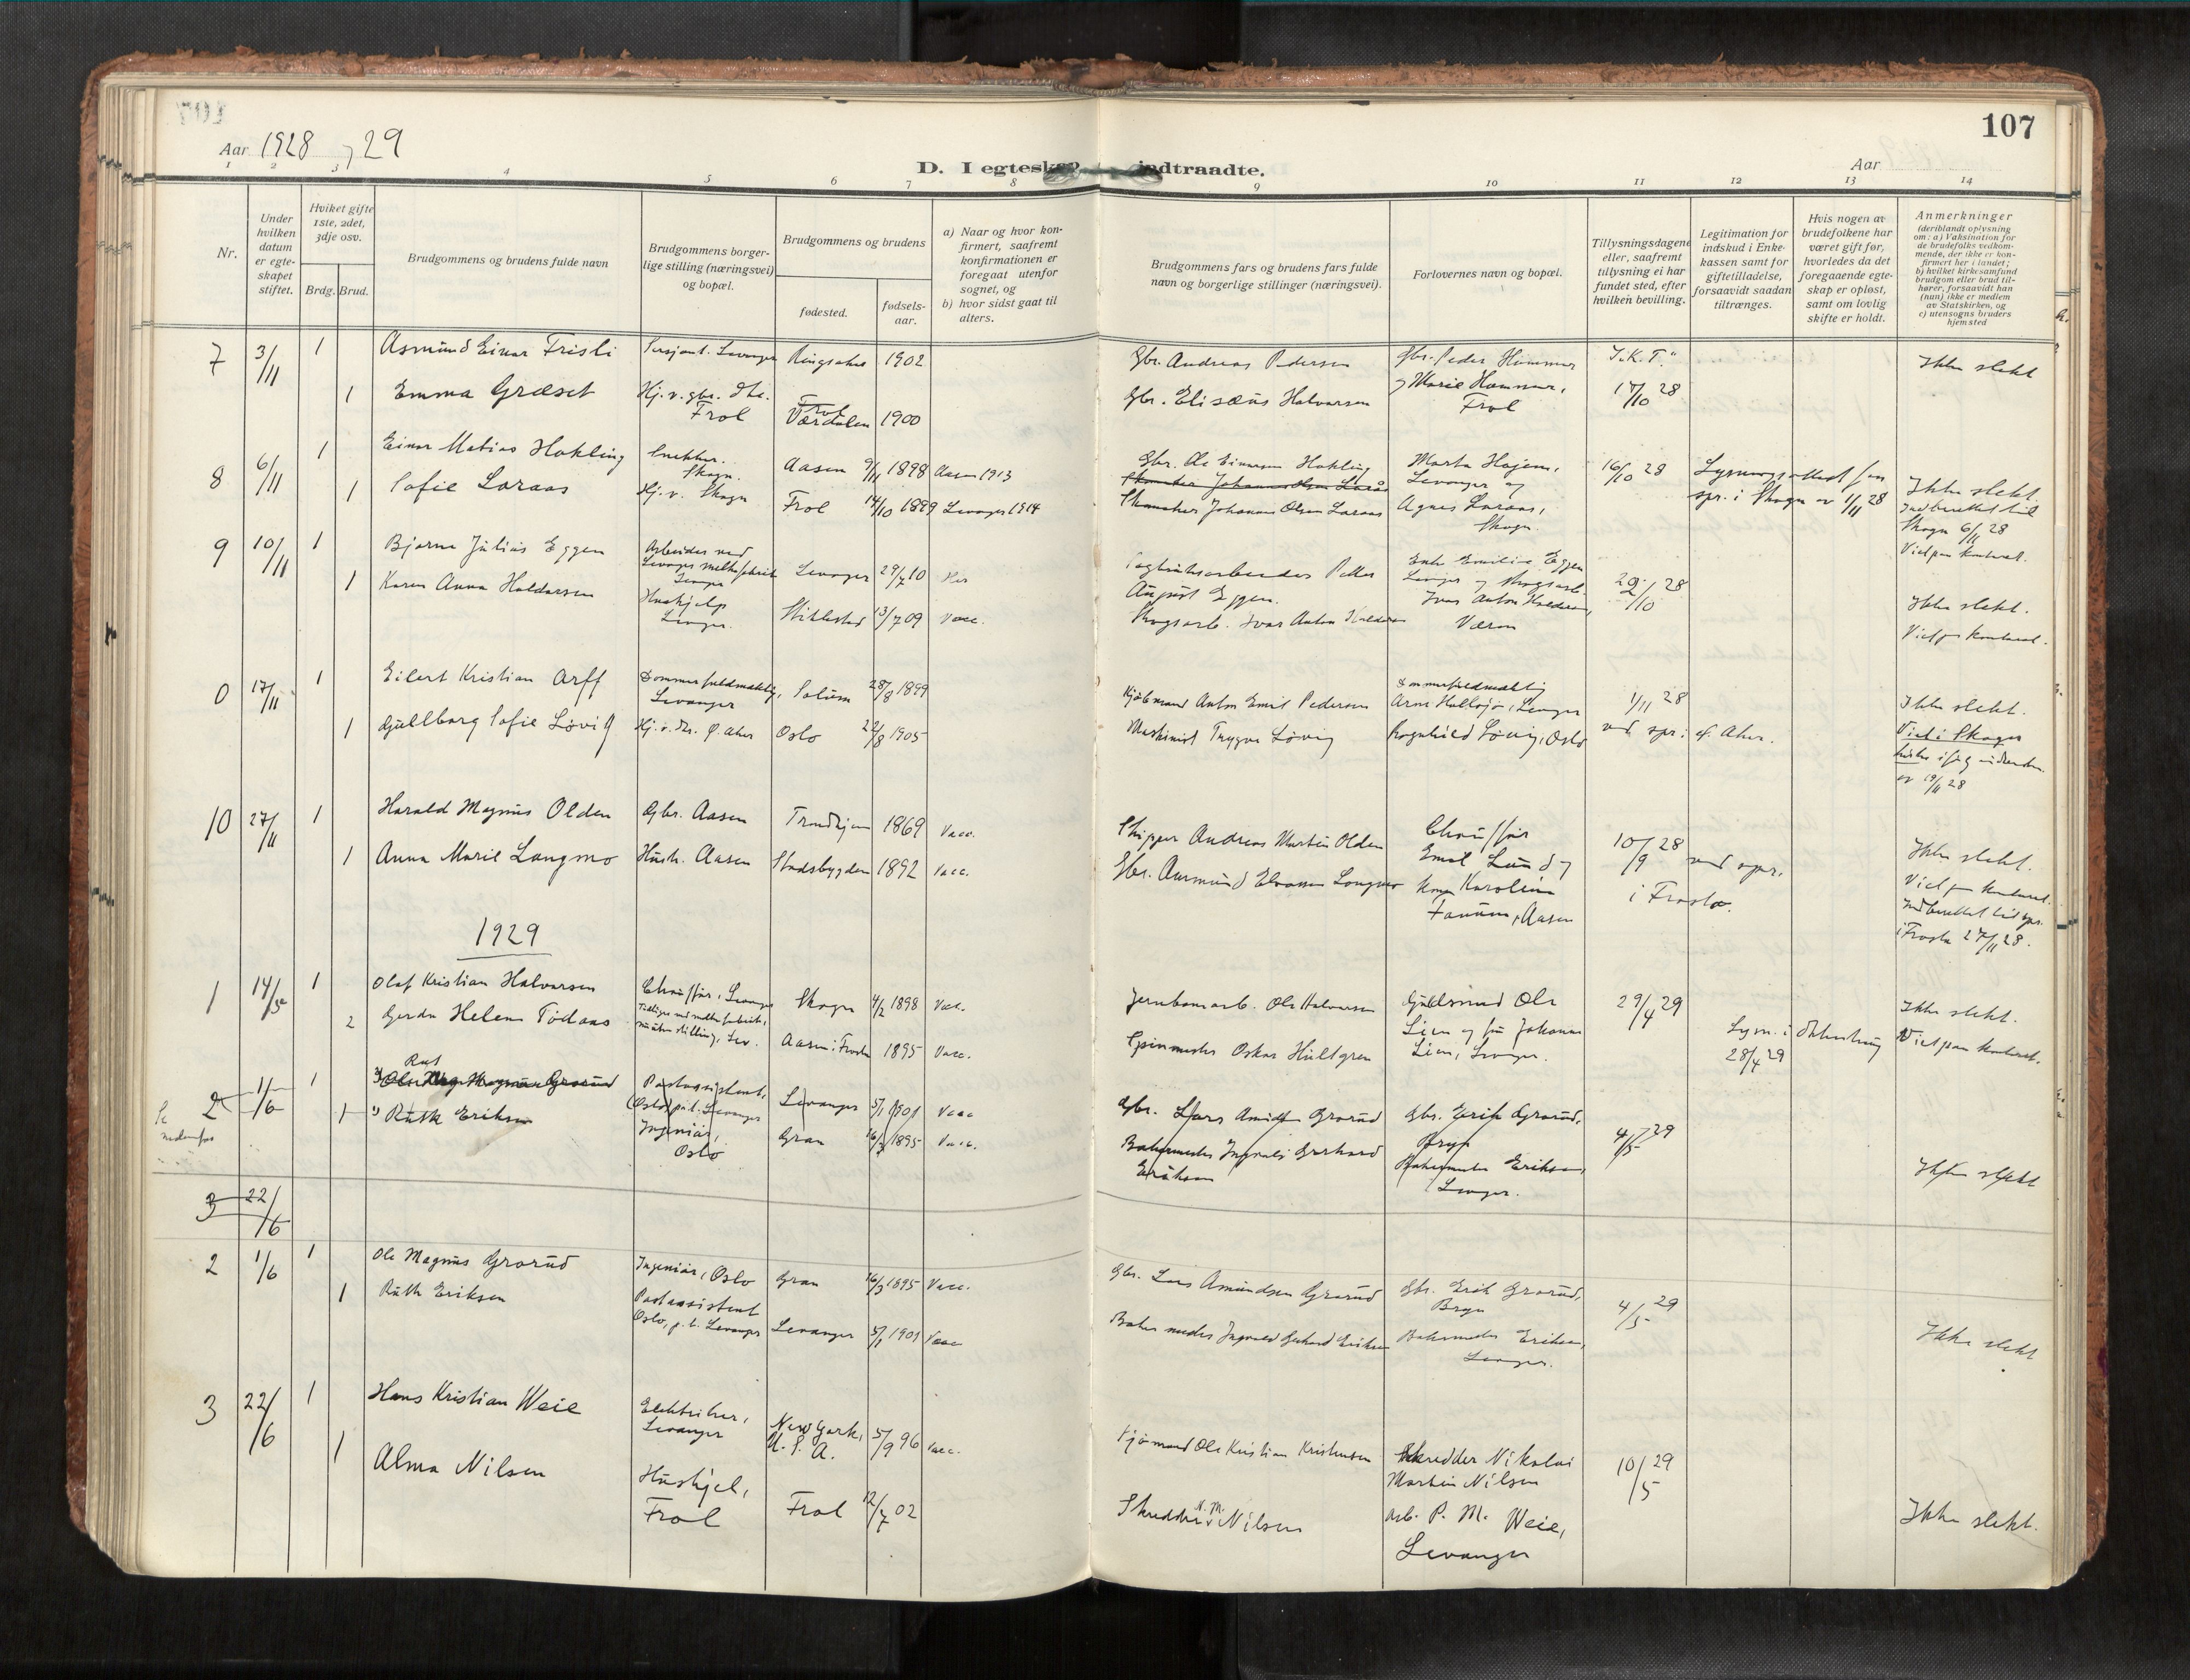 107
Aar 1928, 29
D. I egteskap indtraadte.
Aar
1 2 3 4 5 6 7 8 9 10 11 12 13 14
Nr.
Under hvilken datum er egte-skapet stiftet.
Hvilket gifte 1ste, 2det, 3dje osv.
Brdg. Brud.
Brudgommens og brudens fulde navn
Brudgommens borger-lige stilling (næringsvei) og bopæl.
Brudgommens og brudens
fødested.
fødsels-aar.
a) Naar og hvor kon-firmert, saafremt konfirmationen er foregaat utenfor sognet, og
b) hvor sidst gaat til alters.
Brudgommens fars og brudens fars fulde navn og borgerlige stillinger (næringsvei).
Forlovernes navn og bopæl.
Tillysningsdagene eller, saafremt tillysning ei har fundet sted, efter hvilken bevilling.
Legitimation for indskud i Enke-kassen samt for giftetilladelse, forsaavidt saadan tiltrænges.
Hvis nogen av brudefolkene har været gift før, hvorledes da det foregaaende egte-skap er opløst, samt om lovlig skifte er holdt.
Anmerkninger (deriblandt oplysning om: a) Vaksination for de brudefolks vedkom-mende, der ikke er kon-firmert her i landet; b) hvilket kirkesamfund brudgom eller brud til-hører, forsaavidt han (hun) ikke er medlem av Statskirken, og c) utensogns bruders hjemsted
7 3/11 1 Asmund Einar Fristi Sersjant. Levanger Ringsaker 1902 Gbr. Andreas Pedersen Gbr. Peder Hammer J.K.T. Ikke slekt
1 Emma Græset Hj. v. gbr. Frol Værdalen 1900 Gbr. Elisæus Halvarsen og Marie Hammer, Frol 17/10 28
8 6/11 1 Einar Matias Hokling Snekker. Skogn. Aasen 9/11 1898 Aasen 1913 Gbr. Ole Einarsen Hokling Marta Hojem, Levanger og 16/10 28 Lysningsattest fra spr. i Skogn av 1/11 28 Ikke slekt.
1 SofieLoraas Hj. v. Skogn Frol 14/10 1899 Levanger 1914 Skomaker Johannes Olsen Loraas Agnes Loraas, Skogn. Indberettet til Skogn 6/11 28 Viet paa kontoret.
9 10/11 1 Bjarne Julius Eggen Arbeider ved Levanger melkefabrik Levanger Levanger 29/7 10 Her Sagbruksarbeider Petter August Eggen. Enke Emilie Eggen Levanger og skogsarb. 29/10 28 Ikke slekt.
1 Karen Anna Haldorsen Hushjelp Levanger. Stiklestad 13/7 09 Vacc. Skogsarb. Ivar Anton Haldorsen Ivar Anton Haldorsen, Væran Viet paa kontoret.
0 17/11 1 Eilert Kristian Arff Dommerfuldmektig, Levanger Solum 28/8 1899 Kjøbmand Anton Emil Pedersen Dommerfuldmektig Arne Hallsjø, Levanger 1/11 28 Ikke slekt.
1 Gullborg Sofie Løvig Hj. v. Oslo 22/8 1905 Maskinist Trygve Løvig Ragnhild Løvig, Oslo ved spr. i V. Aker. Viet i Skogn kirke ifølge av 19/11 28
10 27/11 1 Harald Magnus Olden Gbr. Aasen Trondhjem 1869 Vacc. Skipper Andreas Martin Olden Chauffør Emil Lund og 10/9 28 ved spr. i Frosta. Ikke slekt.
1 Anna Marie Langmo Hush. Aasen Stadsbygden 1892 Vacc. Gbr. Aamund Elvossen Langmo Karoline Fanum, Aasen Viet paa kontoret. Indberettet til spr. i Frosta 27/11 28.
1929
1 14/5 1 Olaf Kristian Halvorsen Chauffør, Levanger Skogn 4/2 1898 Vacc. Jernbanearb. Ole Halvorsen Guldsmed Ole Lien og fru Johanna Lien, Levanger. 29/4 29 Ikke slekt.
2 Gerda Helene Tødaas Aasen i Frosta 1895 Vacc. Spinmester Oskar Hultgren Lysn. i 28/4 29 Viet paa kontoret.
2 1/6 1 Ole Magnus Grorud Postassistent, (Oslo) p.t. Levanger Levanger 5/1 1901 Vacc Gbr. Lars Amundsen Grorud Gbr. Erik Grorud, Bryn 4/5 29
Se nedenfor 1 Ruth Eriksen Ingeniør, Oslo Gran 16/3 1895 Vacc. Bakermester Ingvald Gerhard Eriksen Bakermester Eriksen, Levanger. Ikke slekt
3 22/6
2 1/6 1 Ole Magnus Grorud Ingeniør, Oslo Gran 16/3 1895 Vacc. Gbr. Lars Amundsen Grorud Gbr. Erik Grorud, Bryn 4/5 29
1 Ruth Eriksen Postassistent Oslo, p.t. Levanger Levanger 5/1 1901 Vacc Bakermester Ingvald Gerhard Eriksen Bakermester Eriksen, Levanger. Ikke slekt
3 22/6 1 Hans Kristian Weie Elektriker, Levanger New York, U.S.A. 5/9 96 Vacc. Sjømand Ole Kristian Kristensen Skredder Nikolai Martin Nilsen 10/5 29
1 Alma Nilsen Hushjelp, Frol Frol 12/7 02 Skredder N.M. Nilsen Arb. P.M. Weie, Levanger Ikke slekt.